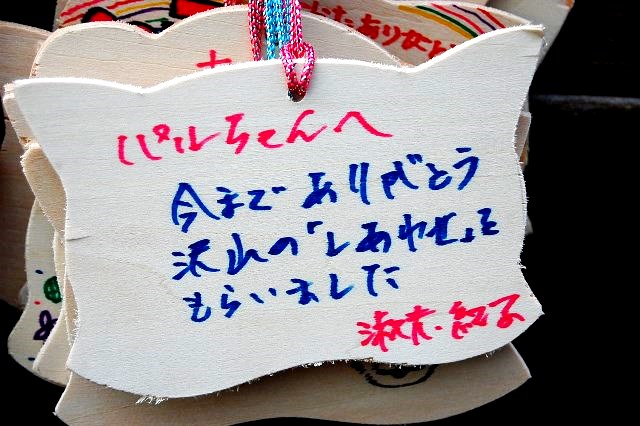 パルちゃんへ
今までありがとう
沢山の「しあわせ」を
もらいました